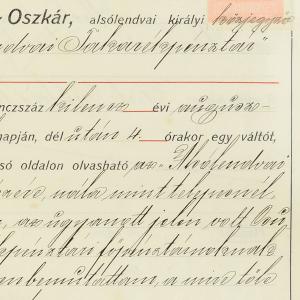 Oszkár, alsólendvai királyi közjegyző
lendvai Takarékpénztár"
nczszáz kilencz évi augusz-
napján, dél után 4 órakor egy váltót,
só oldalon olvasható az „Alsólendvai
nála mint telepesnél
az ugyanott jelen volt
főpénztárnoknak
bemutattam, a mire tőle